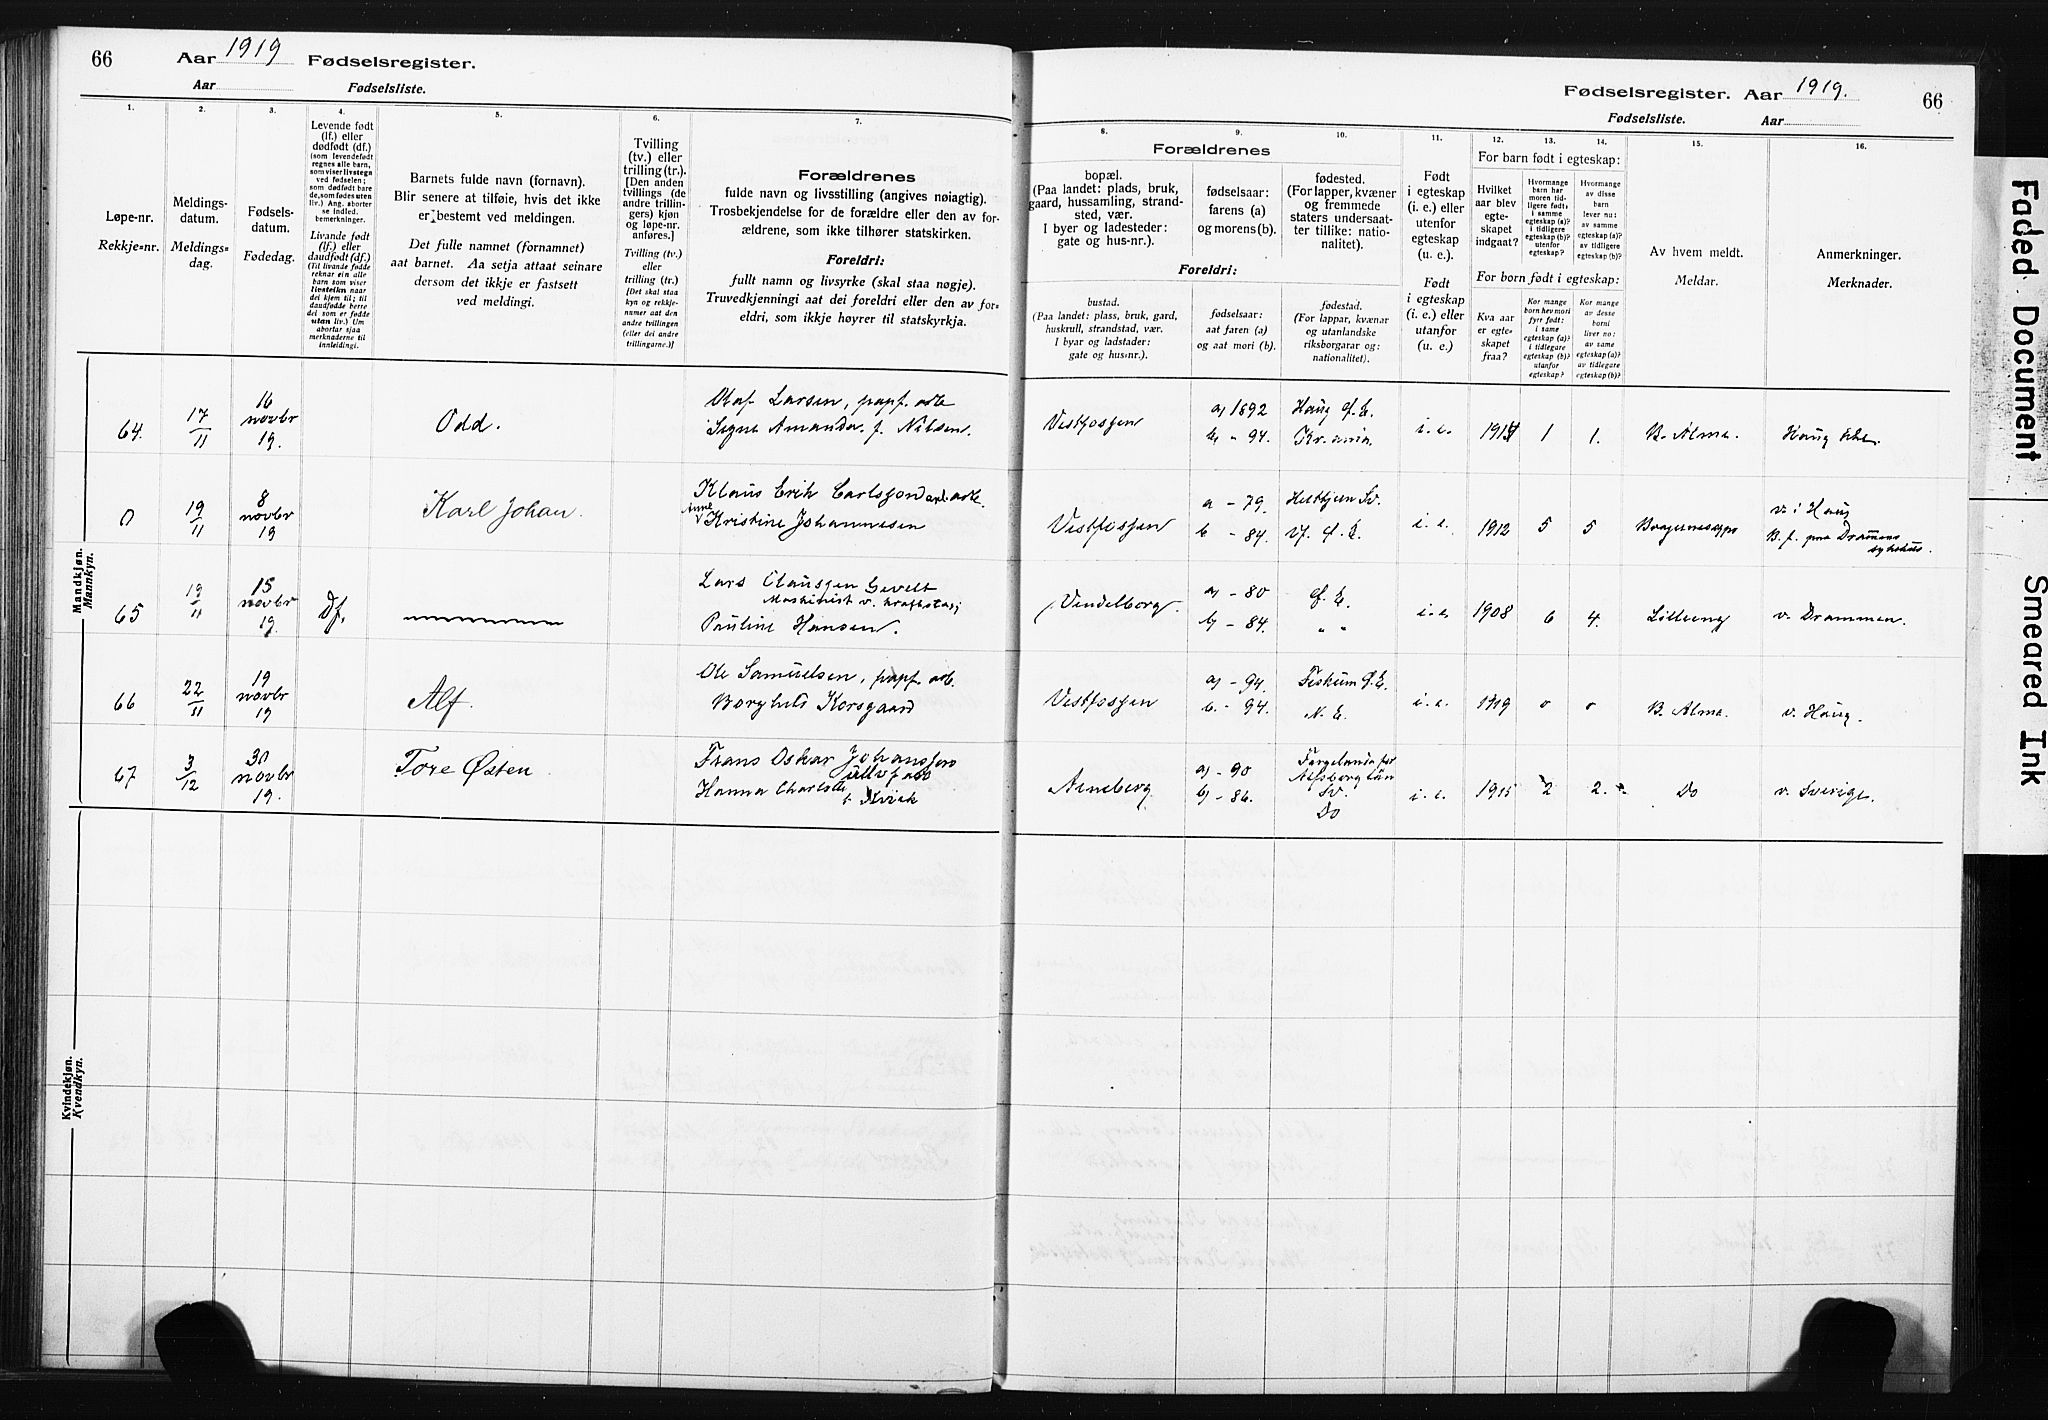 66
Aar 1919 Fødselsregister.
Aar Fødselsliste.
1.
2.
3.
4.
5.
6.
7.
Løpe-nr.
Rekkje-nr.
Meldings-
datum.
Meldings-
dag.
Fødsels-
datum.
Fødedag.
Levende født
(lf.) eller
dødfødt (df.)
(som levendefødt
regnes alle barn,
som viser livstegn
ved fødselen;
som dødfødt bare
de, som fødes uten
liv.) Ang. aborter
se indled.
bemerkninger.
Livande født
(lf.) eller
daudfødt (df.)
(Til livande fødde
reknar ein alle
barn som viser
livsteikn naar
dei kjem til; til
daudfødde berre
dei som er fødde
utan liv.) Um
abortar sjaa
merknaderne til
innleidingi.
Barnets fulde navn (fornavn).
Blir senere at tilføie, hvis det ikke
er bestemt ved meldingen.
Det fulle namnet (fornamnet)
aat barnet. Aa setja attaat seinare
dersom det ikkje er fastsett
ved meldingi.
Tvilling
(tv.) eller
trilling (tr.).
[Den anden
tvillings (de
andre trillin-
gers) kjøn
og løpe-nr.
anføres.]
Tvilling (tv.)
eller
trilling (tr.)
[Det skal staa
kyn og rekkje-
numer aat den
andre tvillingen
(eller dei andre
trillingarne.)]
Forældrenes
fulde navn og livsstilling (angives nøiagtig).
Trosbekjendelse for de forældre eller den av for-
ældrene, som ikke tilhører statskirken.
Foreldri:
fullt namn og livsyrke (skal staa nøgje).
Truvedkjenningi aat dei foreldri eller den av for-
eldri, som ikkje høyrer til statskyrkja.
Mandkjøn.
Mannkyn.
64.
17
11
16
novbr
19.
Odd.
Olaf Larsen, papf. arb.
Signe Amanda f. Nilsen.
0
19
11
8
novbr
19
Karl Johan.
Klaus Erik Carlsson
Anne
Kristine Johannesen
65
19
11
15
novbr
19.
Df.
Lars Claussen
Maskinist v.
Pauline Hansen.
66
22
11
19
novbr
19
Alf.
Ole Samuelsen, papf. arb.
Borghild Korsgaard
67
3
12
30
novbr
19.
Tore Østen
Frans Oskar Johansson
Hanna
f. Kvick
Kvindekjøn.
Kvendkyn.
Fødselsregister. Aar 1919. 66
Fødselsliste. Aar
8.
9.
10.
11.
12.
13.
14.
15.
16.
Forældrenes
bopæl.
(Paa landet: plads, bruk,
gaard, hussamling, strand-
sted, vær.
I byer og ladesteder:
gate og hus-nr.).
fødselsaar:
farens (a)
og morens (b).
fødested.
(For lapper, kvæner
og fremmede
staters undersaat-
ter tillike: natio-
nalitet).
Foreldri:
bustad.
(Paa landet: plass, bruk, gard,
huskrull, strandstad, vær.
I byar og ladstader:
gate og hus-nr.).
fødselsaar:
aat faren (a)
og aat mori (b).
fødestad.
(For lappar, kvænar
og utanlandske
riksborgarar og:
nationalitet).
Født
i egteskap
(i. e.) eller
utenfor
egteskap
(u. e.).
Født
i egteskap
(i. e.) eller
utanfor
(u. e.)
For barn født i egteskap:
Hvilket
aar blev
egte-
skapet
indgaat?
Hvormange
barn har
moren tid-
ligere født:
i samme
egteskap (a)?
i tidligere
egteskap (b)?
utenfor
egteskap?
Hvormange
av disse
barn
lever nu:
av samme
egteskap (a)?
av tidligere
egteskap (b)?
For barn født i egteskap:
Kva aar
er egte-
skapet
fraa?
Kor mange
born hev mori
fyrr født:
i same
egteskap (a)?
i tidlegare
egteskap (b)?
utanfor
egteskap?
Kor mange
av desse
borni
liver no:
av same
egteskap (a)?
av tidlegare
egteskap (b)?
Av hvem meldt.
Meldar.
Anmerkninger.
Merknader.
Vestfossen
a) 1892
b) " 94.
Haug Ø. E.
Kr.ania.
i. e.
1
1.
B. Alma.
Haug
Vestfossen
a – 79.
b – 84.
i. e.
1912
5
5
v. i Haug
B. f. paa Drammens
sykehus.
Vendelborg.
a) – 80
b) – 84.
Ø. E.
" "
i. e.
1908
6
4.
v. Drammen.
Vestfossen
a) – 94.
b. – 94.
Fiskum Ø. E.
N. E.
i. e.
1919
0
0
B. Alma.
v. Haug.
Arneberg
a) – 90
b) – 86.
Sv.
Do
i. e.
1915
2
2.
Do
v. Sverige.
Faded Document
Smeared Ink